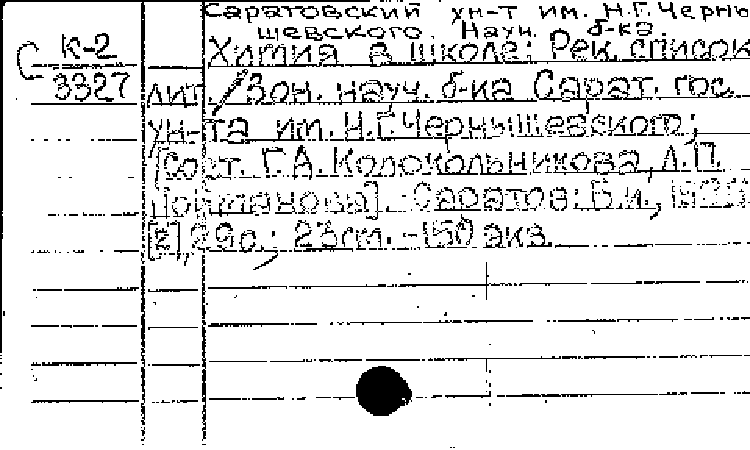 Саратовский ун-т им. Н.Г.Черны-
шевского. Научн. б-ка.
С К-2
3327
Химия в школе: Рек. список
лит. / Зон. науч. б-ка Сарат. гос.
ун-та им. Н.Г.Чернышевского;
[Сост. Г.А. Колокольникова, Л.П.
Саратов: Б.и.,
[2], 29 с.; 23 см. - 150 экз.